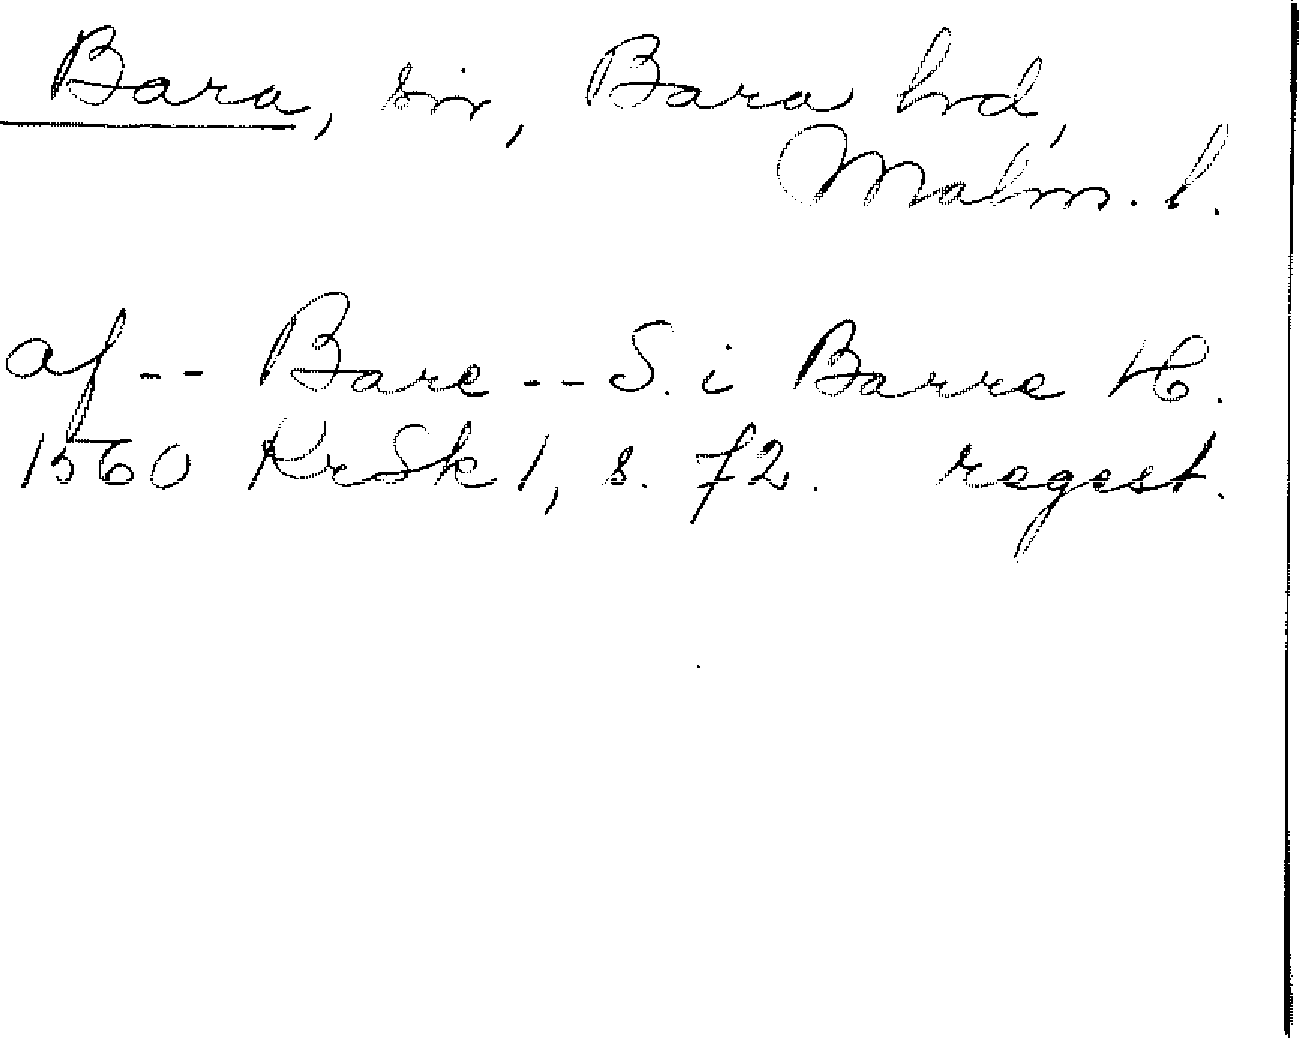 Bara, sn, Bara hd,
Malm. l.
af -- Bare -- S. i Barre H.
1560 KrSk 1, s. 72. regest.